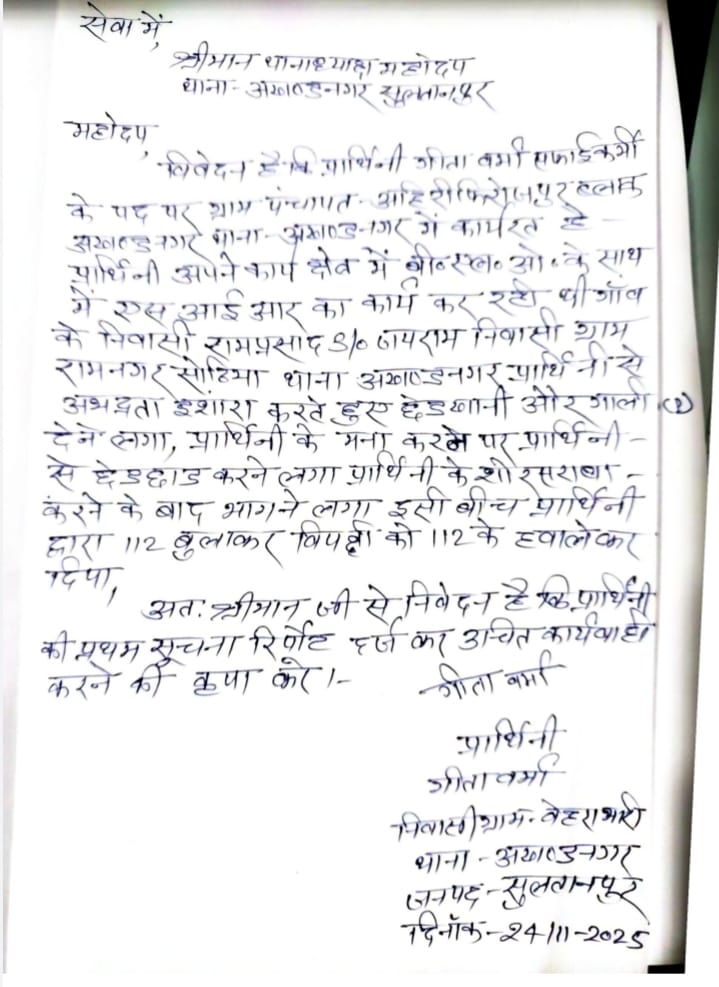 सेवा में,
श्रीमान थानाध्यक्ष महोदय
थाना - अखण्डनगर सुलतानपुर
महोदय,
निवेदन है कि प्रार्थिनी गीता वर्मा सफाईकर्मी
के पद पर ग्राम पंचायत - अहिरी फिरोजपुर ब्लाक
अखण्डनगर थाना - अखण्डनगर में कार्यरत है
प्रार्थिनी अपने कार्य क्षेत्र में बी०एल०ओ० के साथ
में एस आई आर का कार्य कर रही थी गाँव
के निवासी रामप्रसाद S/o जयराम निवासी ग्राम
रामनगर थाना अखण्डनगर प्रार्थिनी से
अभद्रता इशारा करते हुए छेडखानी और गाली (2)
देने लगा, प्रार्थिनी के मना करने पर प्रार्थिनी -
से छेडछाड करने लगा प्रार्थिनी के शोरसराबा -
करने के बाद भागने लगा इसी बीच प्रार्थिनी
द्वारा 112 बुलाकर विपक्षी को 112 के हवाले कर
दिया,
अतः श्रीमान जी से निवेदन है कि प्रार्थिनी
की प्रथम सूचना रिर्पोट दर्ज कर उचित कार्यवाही
करने की कृपा करे।-
गीता वर्मा
प्रार्थिनी
गीता वर्मा
निवासी ग्राम -
थाना - अखण्डनगर
जनपद - सुलतानपुर
दिनाँक - 24/11-2025